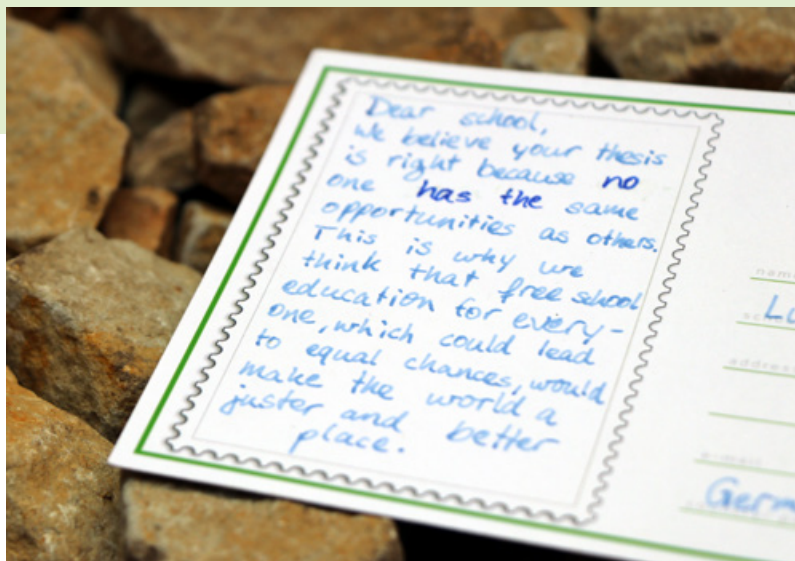 Dear school,
We believe your thesis
is right because no
one has the same
opportunities as others.
This is why we
think that free school
education for every-
one, which could lead
to equal chances, would
make the world a
juster and better
place.
name
address
e-mail